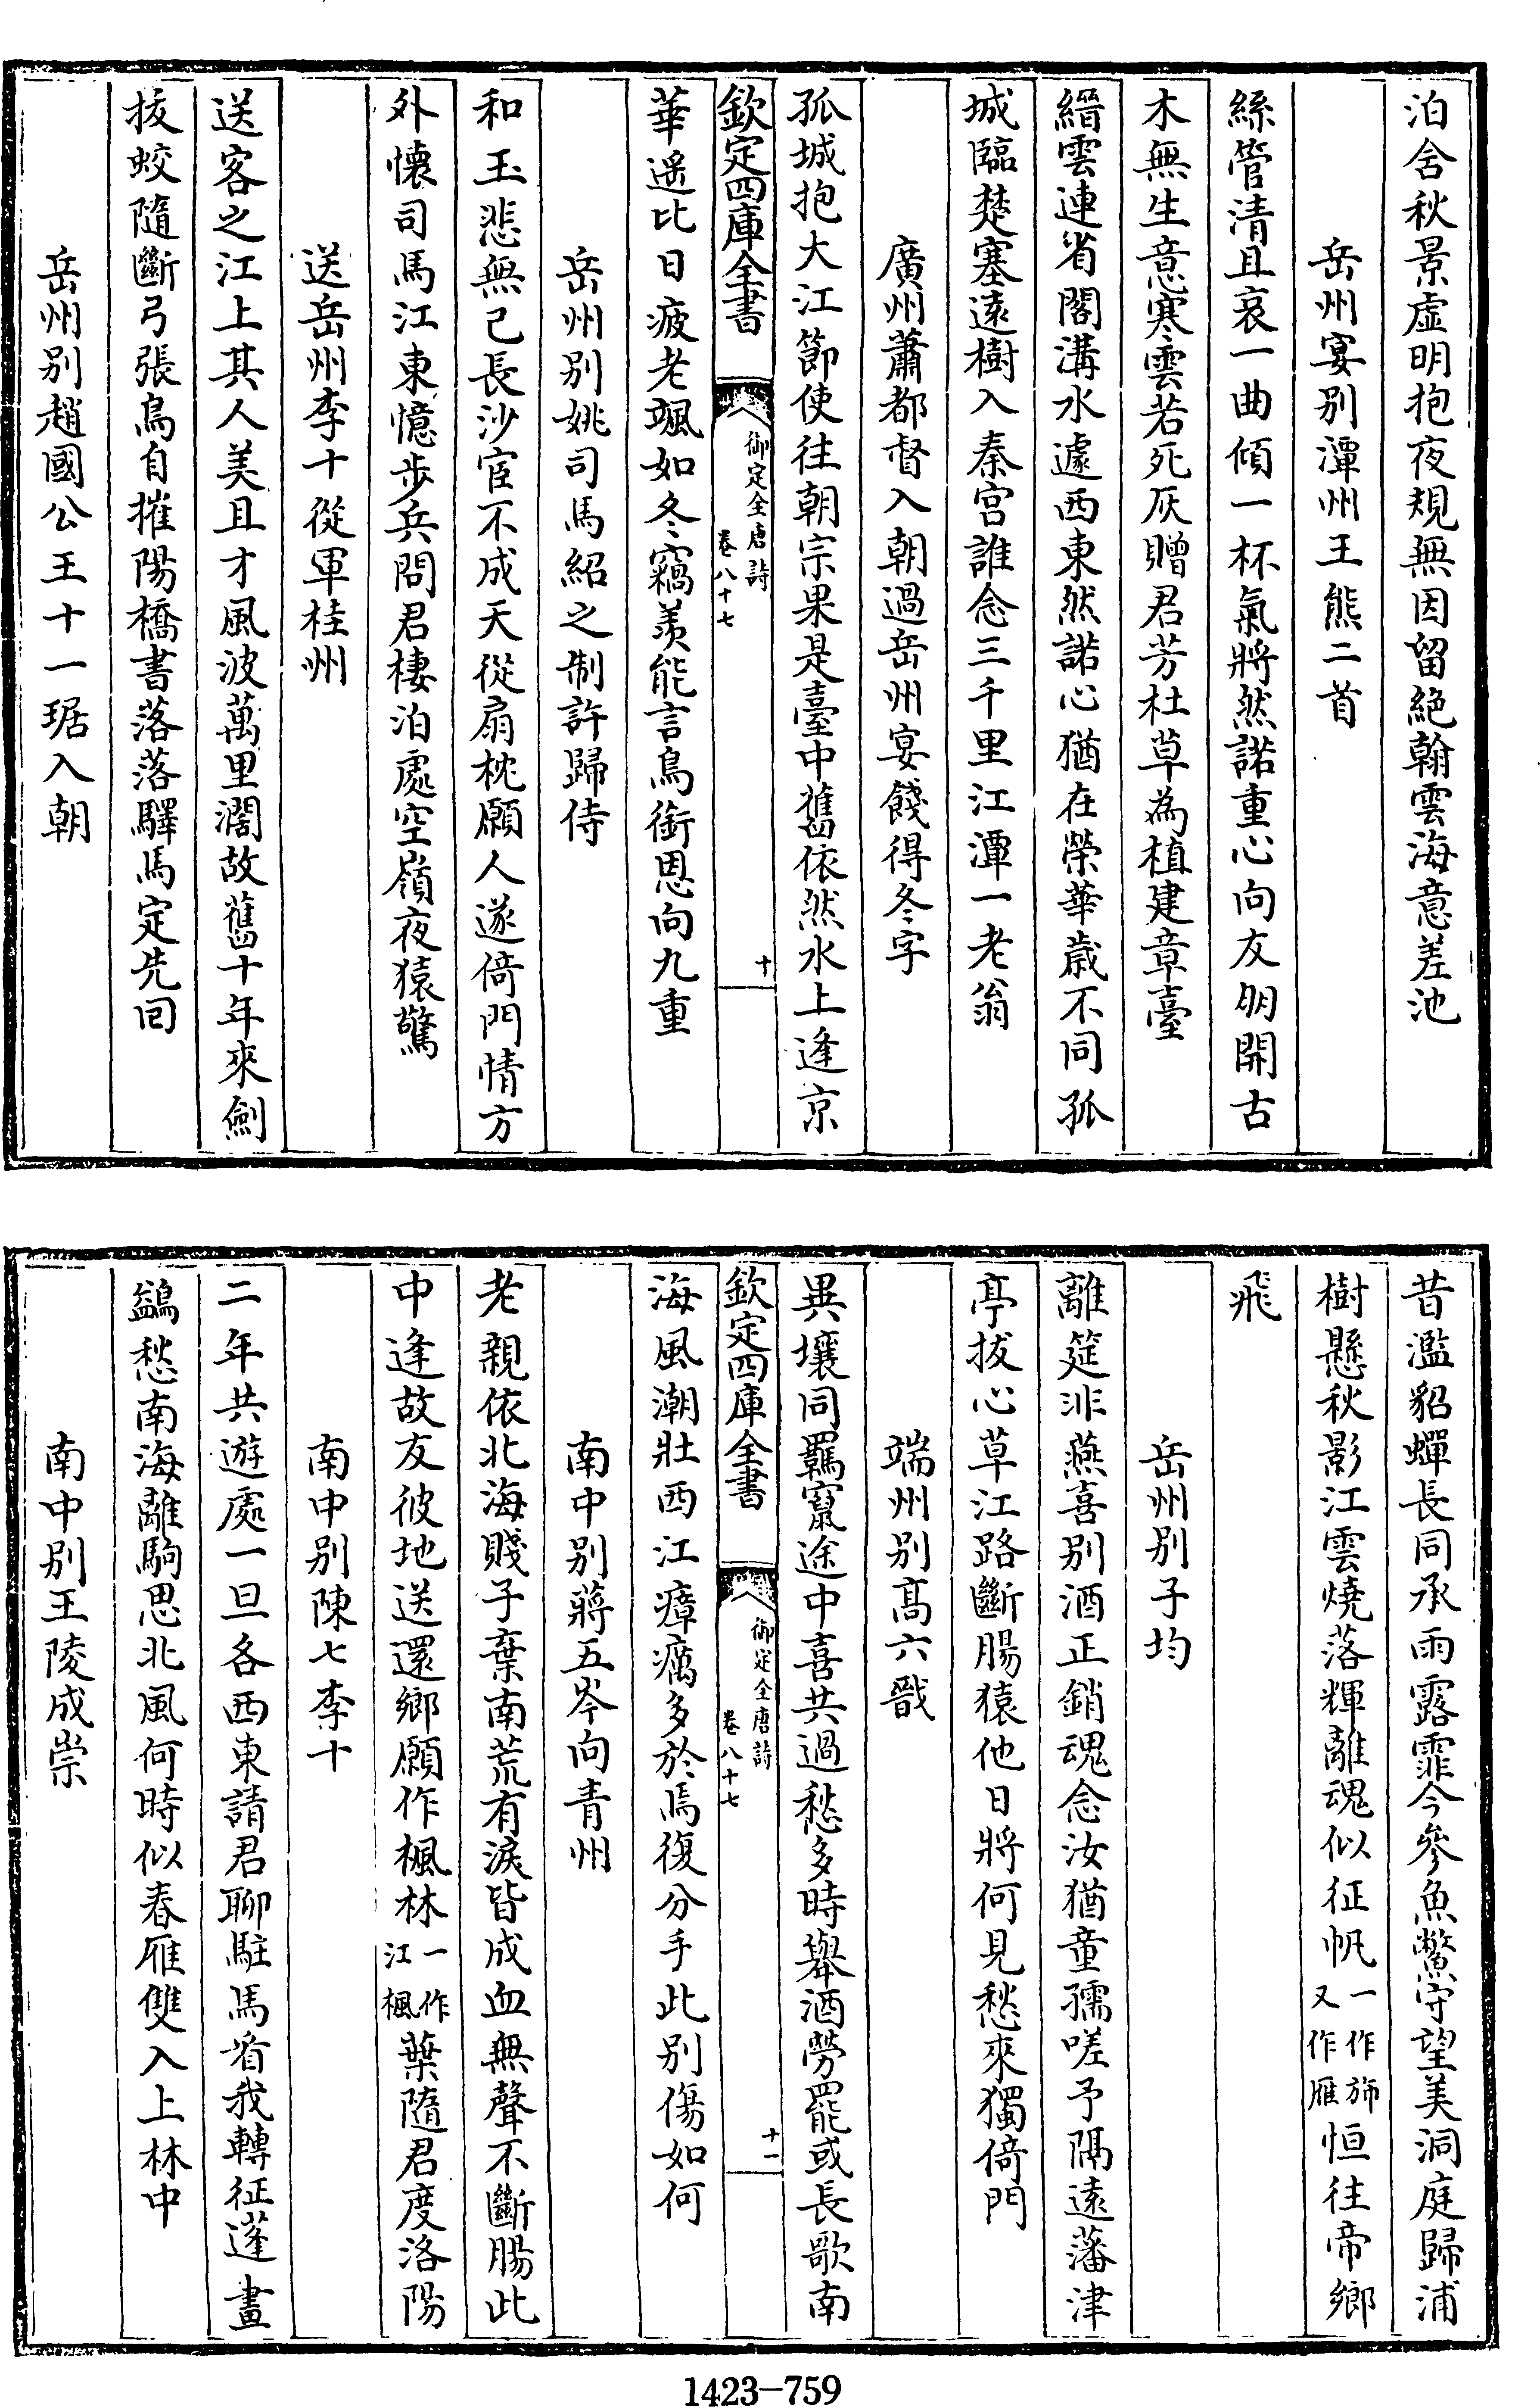 泊舍秋景虚明抱夜規無因留絶翰雲海意差池
岳州宴别潭州王熊二首
絲管清且哀一曲傾一杯氣將然諾重心向友朋開古
木無生意寒雲若死灰贈君芳杜草為植建章臺
縉雲連省閣溝水遽西東然諾心猶在榮華歳不同孤
城臨楚塞遠樹入秦宫誰念三千里江潭一老翁
廣州蕭都督入朝過岳州宴餞得冬字
孤城抱大江節使往朝宗果是臺中舊依然水上逢京
欽定四庫全書
御定全唐詩
卷八十七
十
華遥比日疲老颯如冬竊羡能言鳥銜恩向九重
岳州别姚司馬紹之制許歸侍
和玉悲無已長沙宦不成天從扇枕願人遂倚門情方
外懷司馬江東憶歩兵問君棲泊處空嶺夜猿驚
送岳州李十從軍桂州
送客之江上其人美且才風波萬里濶故舊十年來劍
拔蛟隨斷弓張鳥自摧陽橋書落落驛馬定先回
岳州别趙國公王十一琚入朝
昔濫貂蟬長同承雨露霏今參魚鱉守望美洞庭歸浦
樹懸秋影江雲燒落輝離魂似征帆一作旆又作雁恒往帝鄉
飛
岳州别子均
離筵非燕喜别酒正銷魂念汝猶童孺嗟予隔遠藩津
亭拔心草江路斷腸猿他日將何見愁來獨倚門
端州别髙六戩
異壤同羈竄途中喜共過愁多時舉酒勞罷或長歌南
欽定四庫全書
御定全唐詩
卷八十七
十一
海風潮壯西江瘴癘多於焉復分手此别傷如何
南中别蔣五岑向青州
老親依北海賤子棄南荒有淚皆成血無聲不斷腸此
中逢故友彼地送還鄉願作楓林一作江楓葉隨君度洛陽
南中别陳七李十
二年共遊處一旦各西東請君聊駐馬看我轉征蓬畫
鷁愁南海離駒思北風何時似春雁雙入上林中
南中别王陵成崇
1423—759